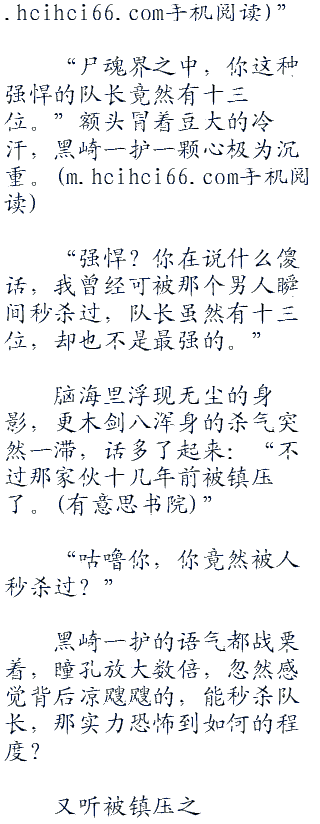 .hcihci66.com手机阅读)”
“尸魂界之中，你这种
强悍的队长竟然有十三
位。”额头冒着豆大的冷
汗，黑崎一护一颗心极为沉
重。(m.hcihci66.com手机阅
读)
“强悍？你在说什么傻
话，我曾经可被那个男人瞬
间秒杀过，队长虽然有十三
位，却也不是最强的。”
脑海里浮现无尘的身
影，更木剑八浑身的杀气突
然一滞，话多了起来：“不
过那家伙十几年前被镇压
了。(有意思书院)”
“咕噜你，你竟然被人
秒杀过？”
黑崎一护的语气都战栗
着，瞳孔放大数倍，忽然感
觉背后凉飕飕的，能秒杀队
长，那实力恐怖到如何的程
度？
又听被镇压之